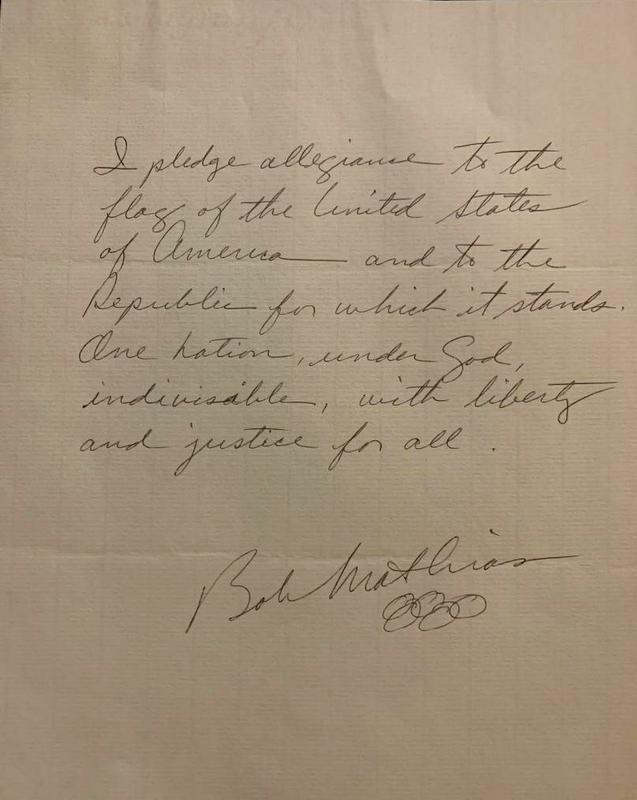 I pledge allegiance to the
flag of the United States
of America and to the
Republic for which it stands.
One nation, under God,
indivisible, with liberty
and justice for all.
Bob Mathias